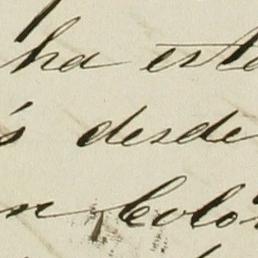 ha esta
s desde
n Colo